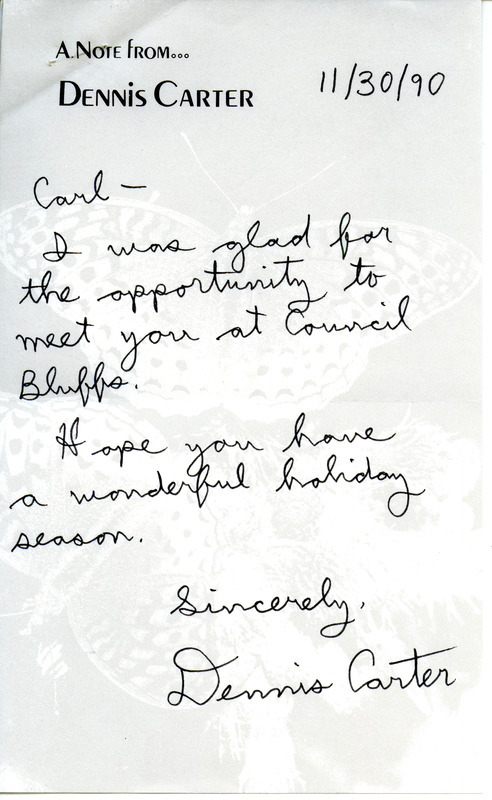 A Note from...
Dennis Carter
11/30/90
Carl —
I was glad for
the opportunity to
meet you at Council
Bluffs.
Hope you have
a wonderful holiday
season.
Sincerely,
Dennis Carter